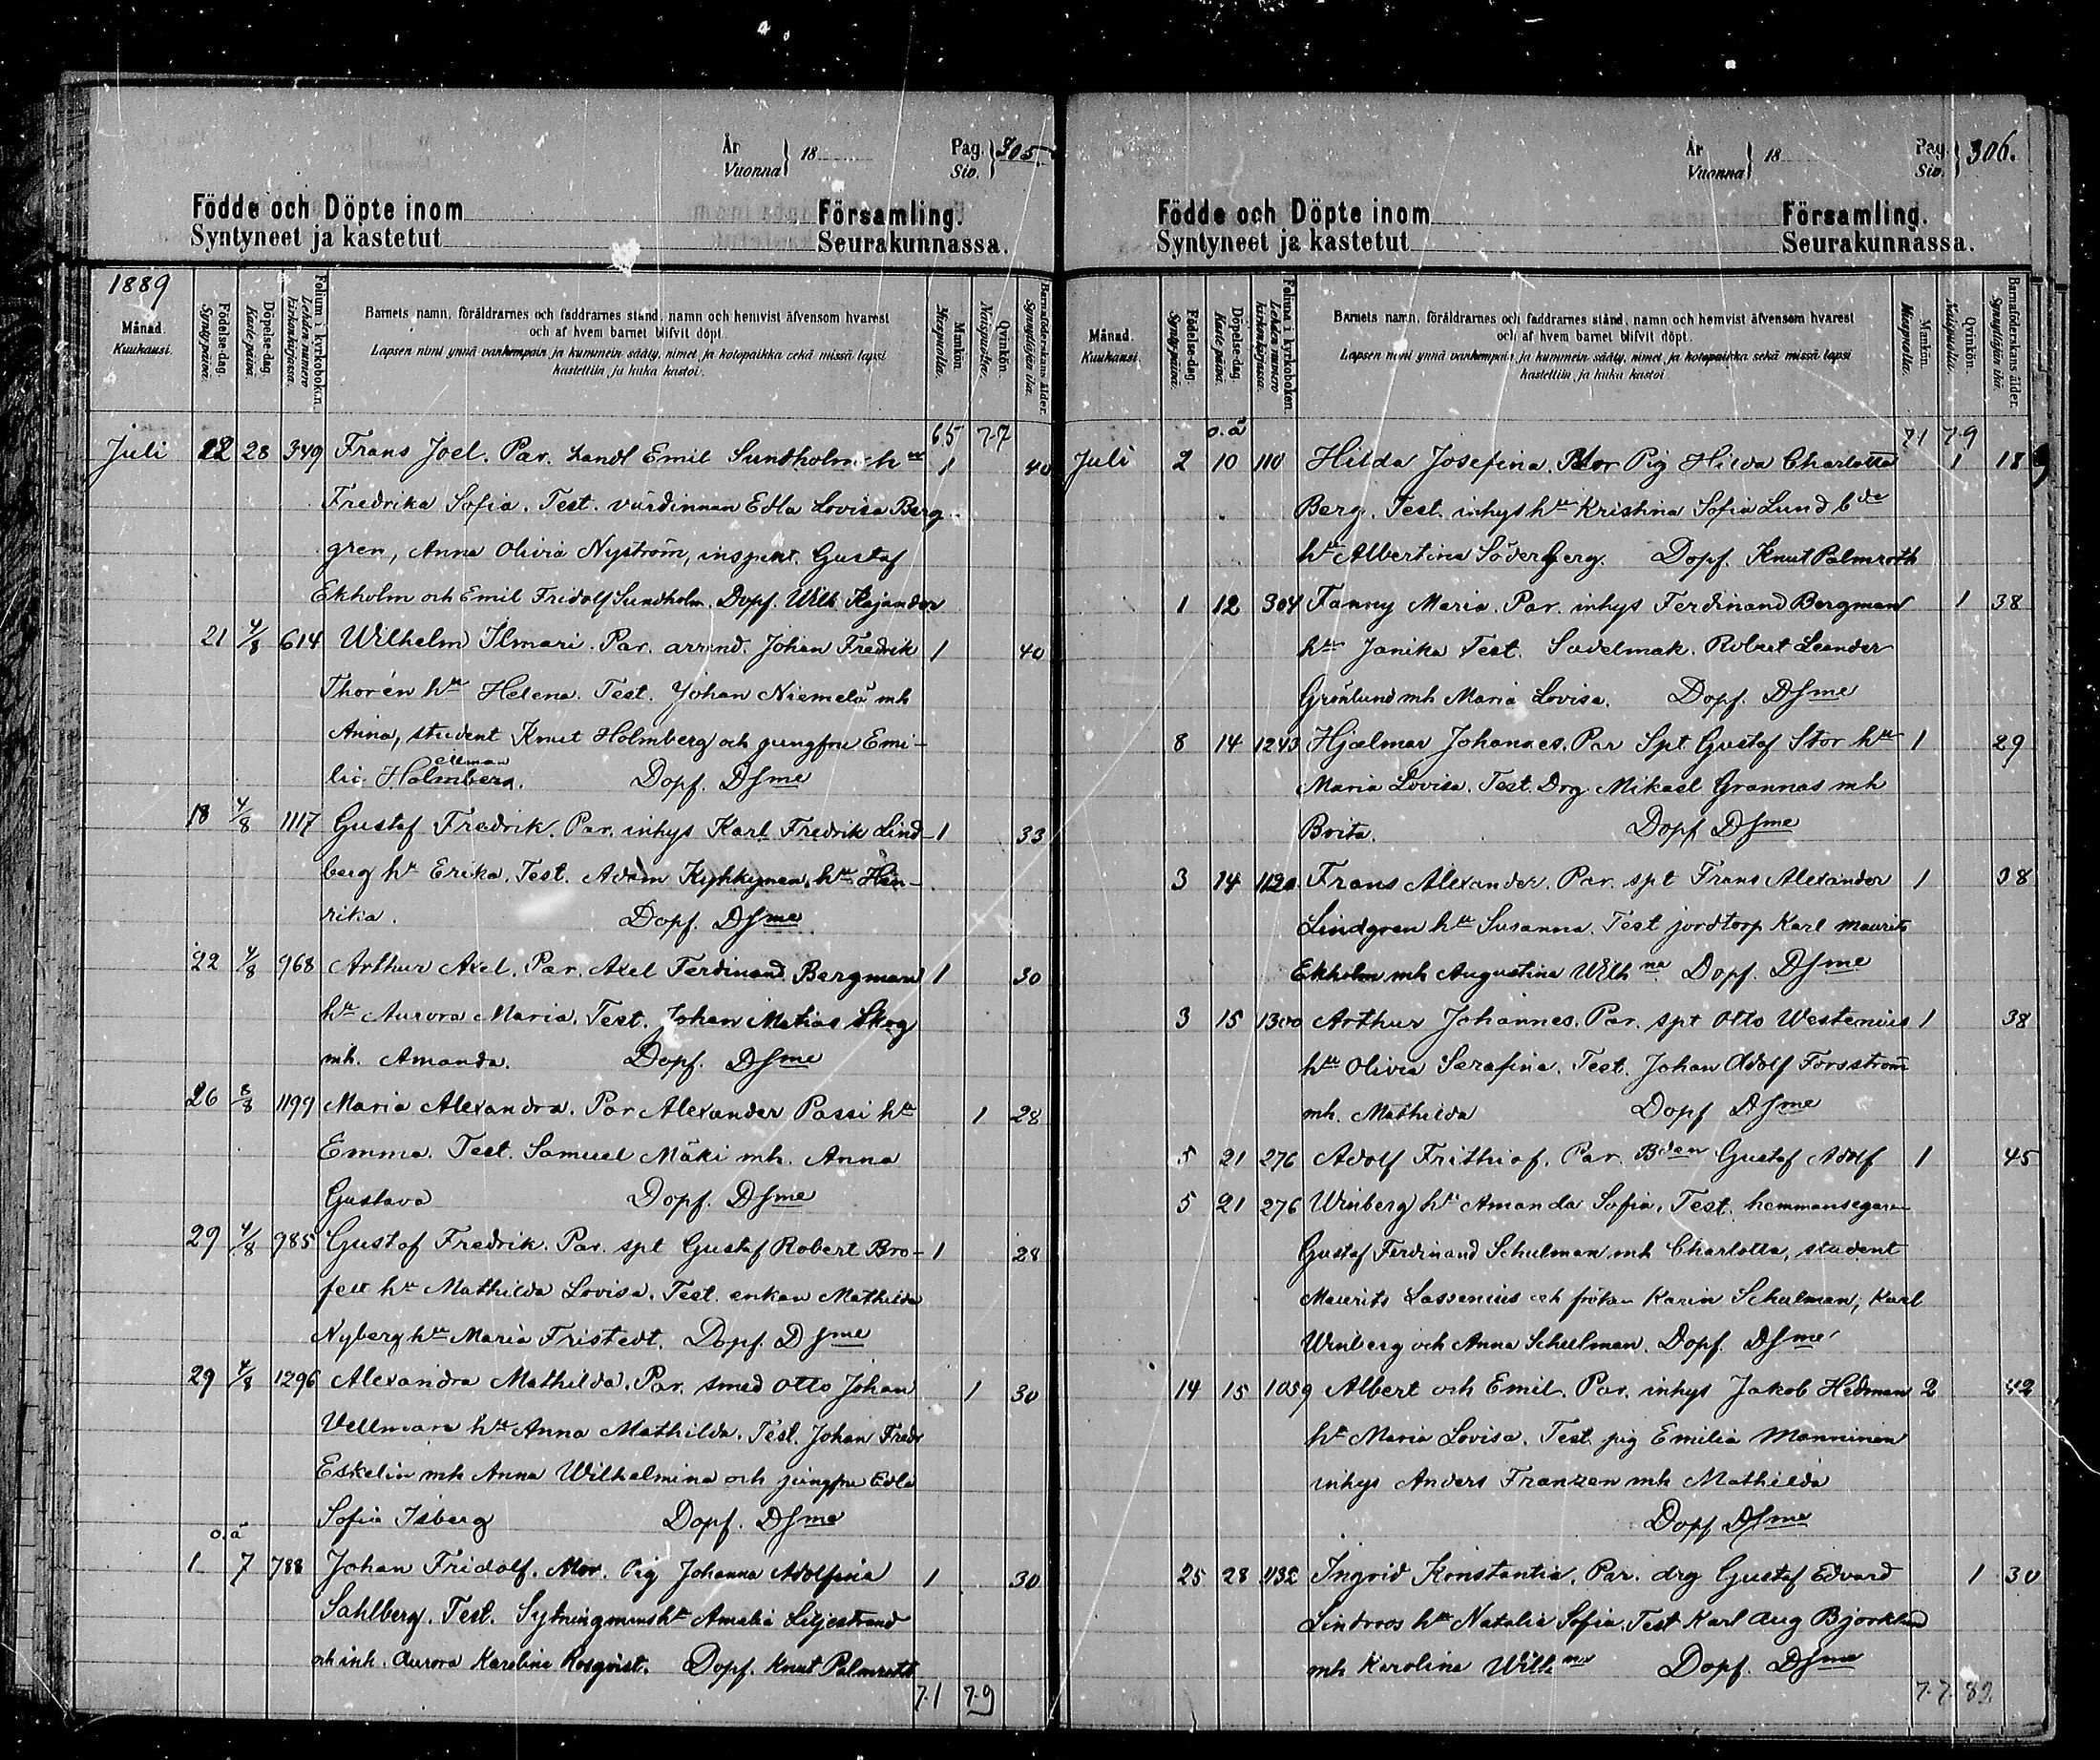 År Vuonna 18 Pag. Siv. 305.
Födde och Döpte inom Församling.
Syntyneet ja kastetut Seurakunnassa.
1889
Månad. Kuukausi.
Födelse-dag. Syntypäivä.
Döpelse-dag. Kastepäivä.
Folium i kyrkoboken. Lehden numero kirkonkirjassa.
Barnets namn, föräldrarnes och faddrarnes stånd, namn och hemvist äfvensom hvarest
och af hvem barnet blifvit döpt.
Lapsen nimi ynnä vanhempain ja kummein sääty, nimet ja kotopaikka sekä missä lapsi
kastettiin ja kuka kastoi.
Mankön. Miespuolia.
Qvinkön. Naispuolia.
Barnaföderskans ålder. Synnyttäjän ikä.
65 77
Juli 22 28 349 Frans Joel. Par. Landl Emil Sundholm h 1 40
Fredrika Sofia. Test. värdinnan Edla Lovisa Berg
gren, Anna Olivia Nyström, inspekt. Gustaf
Ekholm och Emil Fridolf Sundholm. Dopf. Wilh Kajander
21 4/8 614 Wilhelm Ilmari. Par. arrend. Johan Fredrik 1 40
Thorén hu Helena. Test. Johan Niemelä mh
Anna, student Knut Holmberg och jungfru Emi-
ellman
lie Holmberg. Dopf. DSme
18 4/8 1117 Gustaf Fredrik. Par. inhys Karl Fredrik Lind- 1 33
berg hu Erika. Test. Adam Kyhkynen, hu Hen-
rika. Dopf. DSme
22 4/8 968 Arthur Axel. Par. Axel Ferdinand Bergman 1 30
hu Aurora Maria. Test. Johan Matias Skog
mh. Amanda. Dopf. DSme
26 8/8 1199 Maria Alexandra. Par Alexander Passi hu 1 28
Emma. Test. Samuel Mäki mh. Anna
Gustava Dopf. DSme
29 4/8 985 Gustaf Fredrik. Par. spt Gustaf Robert Bro- 1 28
felt hu Mathilda Lovisa. Test. enkan Mathilda
Nyberg hu Maria Fristedt. Dopf. DSme
29 4/8 1296 Alexandra Mathilda. Par. smed Otto Johan 1 30
Vellmara hu Anna Mathilda. Test. Johan Fredr
Eskelin mh Anna Wilhelmina och jungfru Edla
Sofia Isberg Dopf. DSme
o.ä
1 7 788 Johan Fridolf. Mor. Pig Johanna Adolfina 1 30
Sahlberg. Test. Sytningmans hu Amalia Liljestrand
och inh. Aurora Karolina Rosqvist. Dopf. Knut Palmroth
71 79
År Vuonna 18 Pag. Siv. 306.
Födde och Döpte inom Församling.
Syntyneet ja kastetut Seurakunnassa.
Månad. Kuukausi.
Födelse-dag. Syntypäivä.
Döpelse-dag. Kastepäivä.
Folium i kyrkoboken. Lehden numero kirkonkirjassa.
Barnets namn, föräldrarnes och faddrarnes stånd, namn och hemvist äfvensom hvarest
och af hvem barnet blifvit döpt.
Lapsen nimi ynnä vanhempain ja kummein sääty, nimet ja kotopaikka sekä missä lapsi
kastettiin ja kuka kastoi.
Mankön. Miespuolia.
Qvinkön. Naispuolia.
Barnaföderskans ålder. Synnyttäjän ikä.
o.ä 71 79
Juli 2 10 110 Hilda Josefina. Mor Pig Hilda Charlotta 1 18
Berg. Test. inhys hu Kristina Sofia Lund bde
hu Albertina Söderberg. Dopf. Knut Palmroth
1 12 304 Fanny Maria. Par. inhys Ferdinand Bergman 1 38
hu Janika Test. Sadelmak. Robert Leander
Grönlund mh Maria Lovisa. Dopf. DSme
8 14 1243 Hjalmar Johannes. Par Spt Gustaf Stor hu 1 29
Maria Lovisa. Test. Drg Mikael Grannas mh
Brita. Dopf DSme
3 14 1120 Frans Alexander. Par. spt Frans Alexander 1 38
Lindgren hu Susanna. Test jordtorp Karl Maurits
Ekholm mh Augustina Wilhna Dopf. DSme
3 15 1300 Arthur Johannes. Par. spt Otto Westenius 1 38
hu Olivia Serafina. Test. Johan Adolf Forsström
mh. Mathilda Dopf DSme
5 21 276 Adolf Frithiof. Par. Bden Gustaf Adolf 1 45
5 21 276 Winberg hu Amanda Sofia. Test. hemmansegaren
Gustaf Ferdinand Schulman mh Charlotta, student
Maurits Lassenius och fröken Karin Schulman, Karl
Winberg och Anna Schulman. Dopf. DSme
14 15 1059 Albert och Emil. Par. inhys Jakob Hedman 2 42
hu Maria Lovisa. Test. pig Emilia Manninen
inhys Anders Franzen mh Mathilda
Dopf DSme
25 28 1132 Ingrid Konstantia. Par. drg Gustaf Edvard 1 30
Lindroos hu Natalia Sofia. Test Karl Aug Björklund
mh Karolina Wilhna Dopf. DSme
77 82